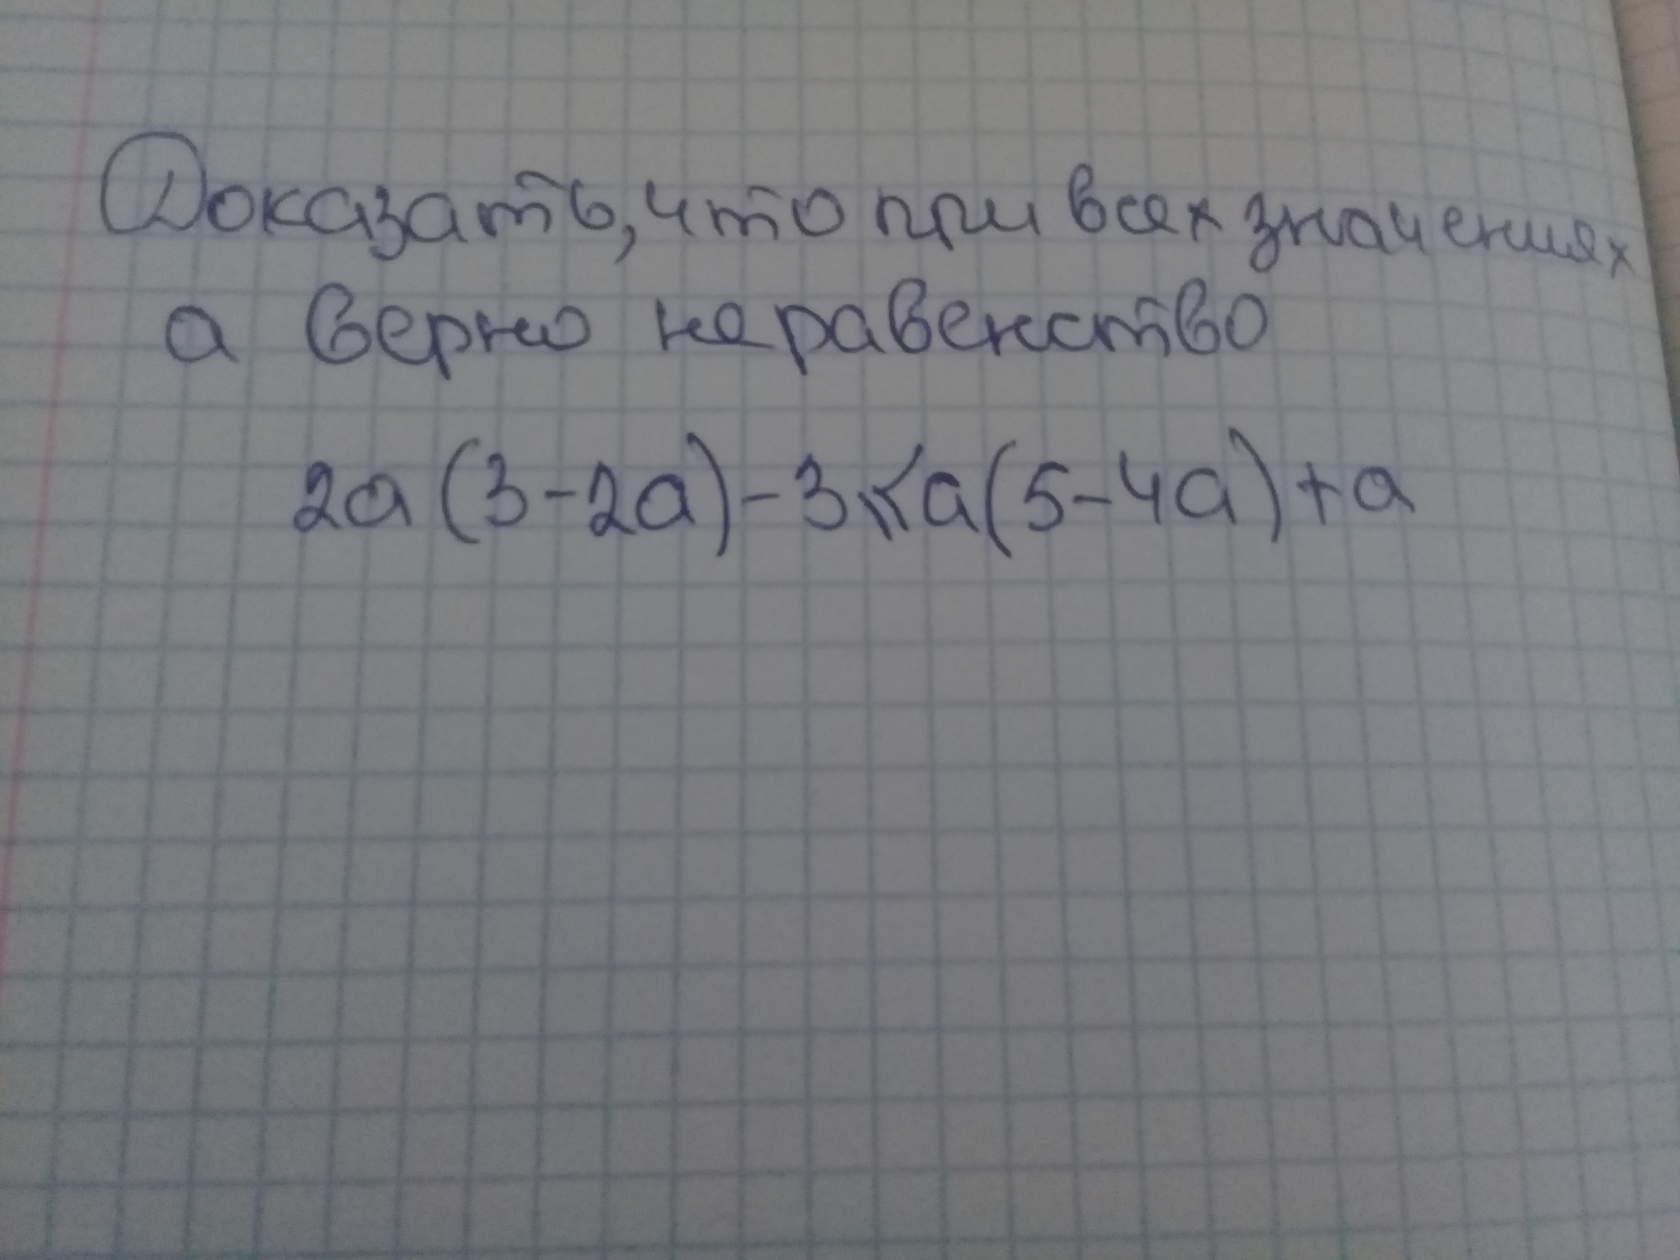 Доказать, что при всех значениях
а верно неравенство
2а(3-2а)-3⩽а(5-4а)+а